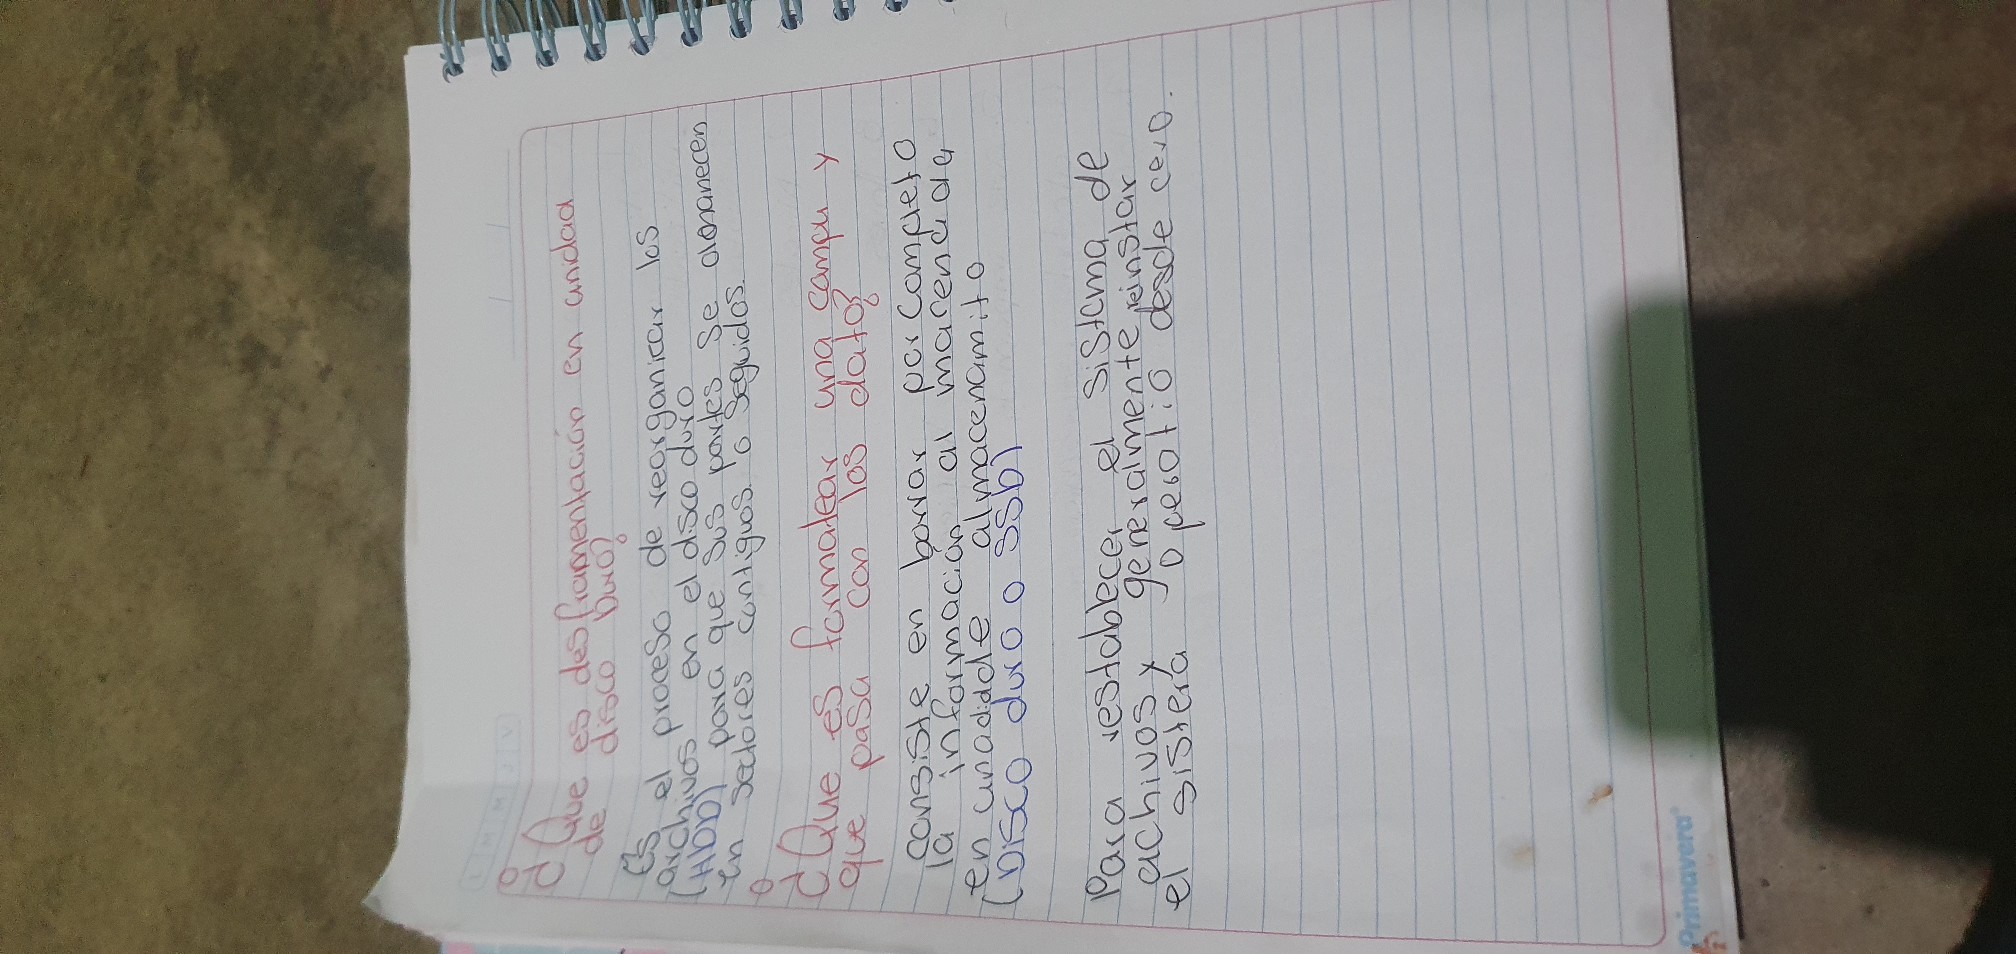 ¿Que es desframentación en unidad
de disco Duro?
Es el proceso de reorganicar los
archivos en el disco duro
(HDD) para que sus partes se
en sectores contiguos o seguidos.
¿Que es formatear una compu y
que pasa con los dato?
Consiste en borrar por completo
la información al macena da
en unadidde almacenamito
(Disco duro o SSD)
Para restablecer el sistema de
achivos y generalmente reinstar
el sistera o pesotio desde cero.
Primavera
L M M J V